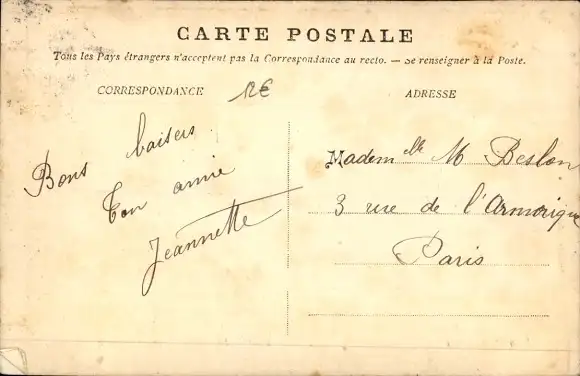 CARTE POSTALE
Tous les Pays étrangers n'acceptent pas la Correspondance au recto. — Se renseigner à la Poste.
CORRESPONDANCE
12€
ADRESSE
Bons baisers
Ton amie
Jeannette
Madem elle M Beslon
3 rue de l'Armorique
Paris